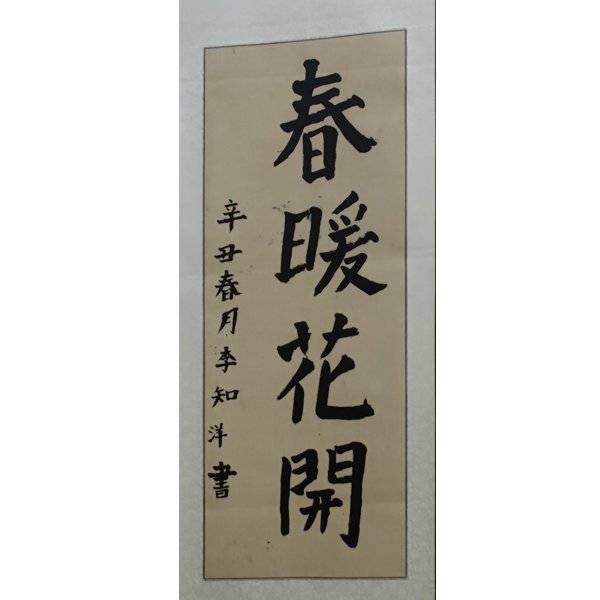 春暖花開
辛丑春月李知洋書